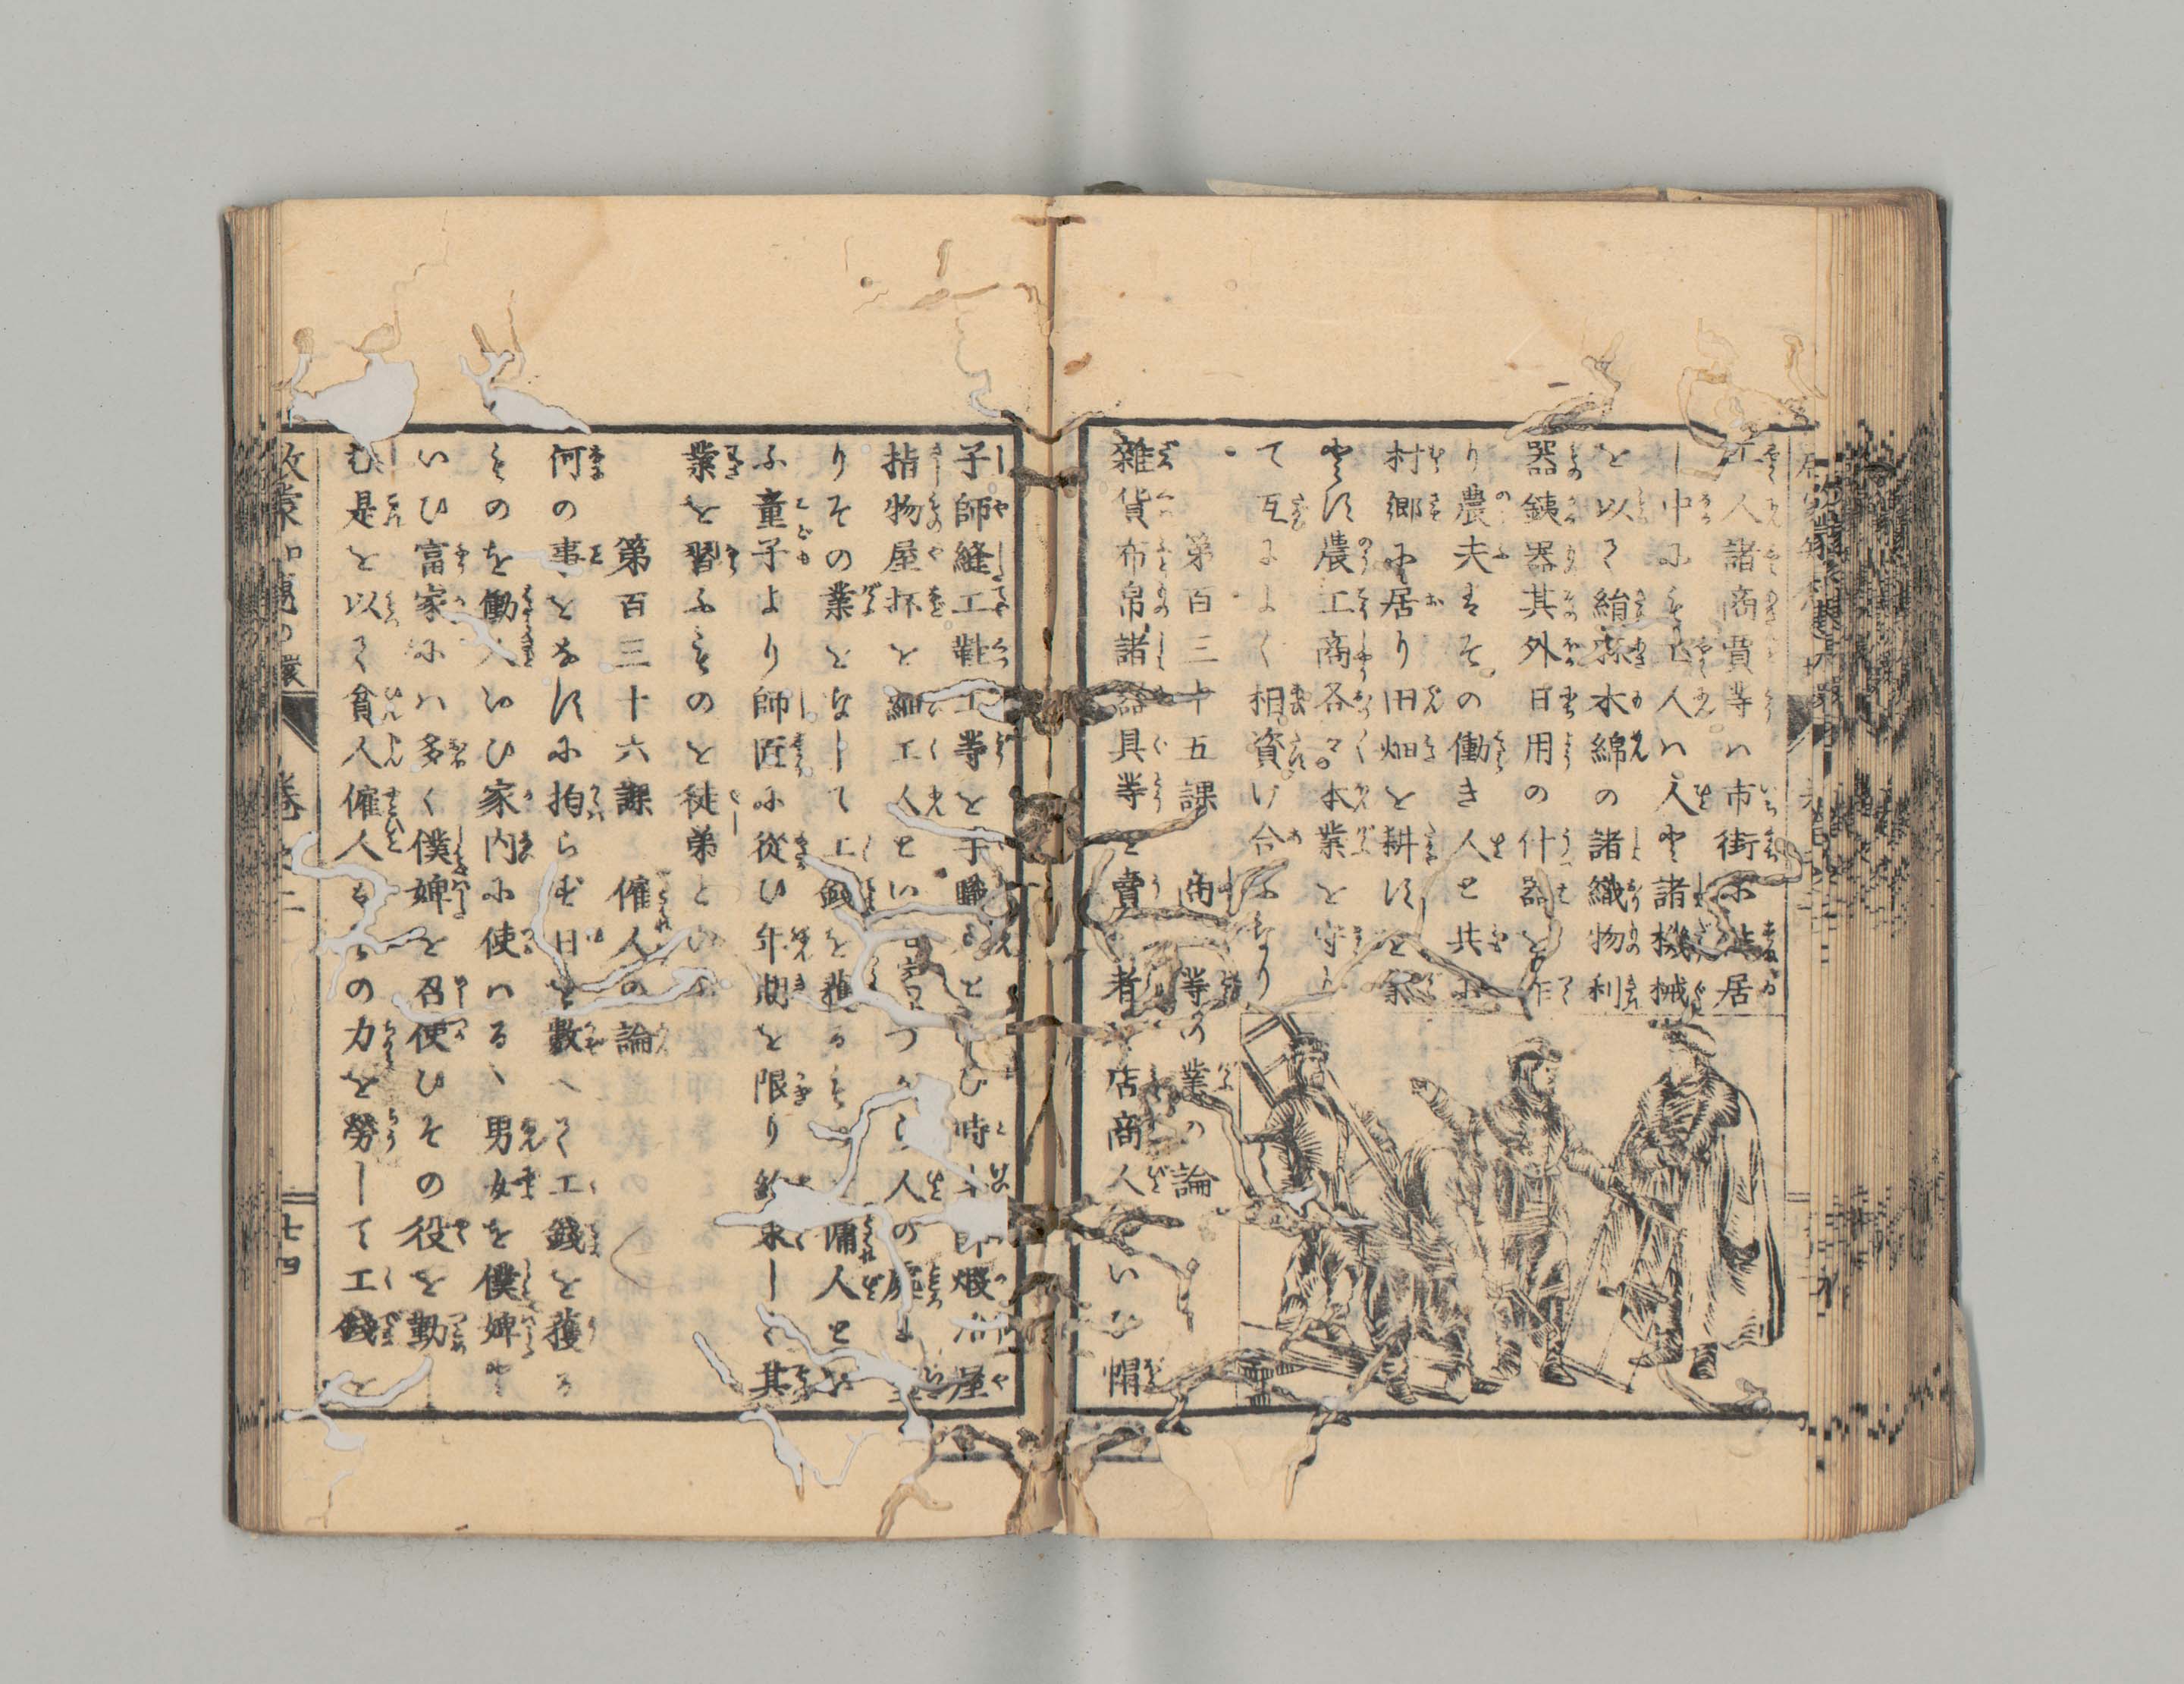 工人諸商賈等ハ市街に 居
し中にも工人ハ人に諸機械
を以て絹 木綿の諸織物利
器銕器其外日用の什器を作
り農夫はその働き人と共に
村郷に居り田畑を耕すを家
とす農工商各々本業を守り
て互によく相資け合ふなり
第百三十五課 商 等の業の論
雜貨布帛諸器具等を賣る者を店商人といひ帽
子師縫工鞋工等を手職 といひ時 師煅冶屋
指物屋抔を細工人とい つから人の庭
りその業をなして工銭を獲るものを傭人とい
ふ童子より師匠に從ひ年期を限り 求して其
業を習ふものを徒弟といふ
第百三十六課 雇人の論
何の事をなすに拘らず日を數へて工錢を獲る
ものを働人といひ家内に使はるゝ男女を僕婢と
いひ富家にハ多く僕婢を召使ひその役を勤
む是を以て貧人雇人 の力を勞して工錢を
七四